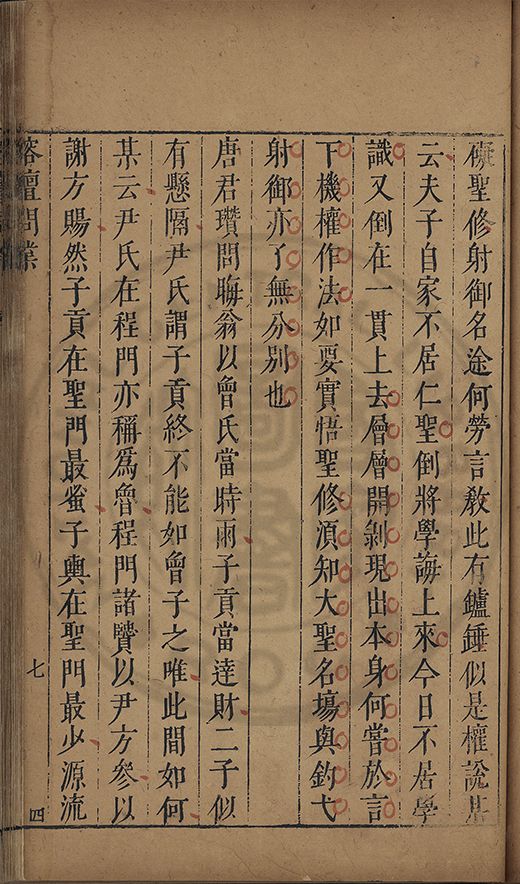 礙聖修射御名途何勞言教此有鑪錘似是權說某
云夫子自家不居仁聖倒將學誨上來今日不居學
識又倒在一貫上去層層開剝現出本身何嘗於言
下機權作法如要實悟聖修須知大聖名塲與釣弋
射御亦了無分別也
唐君瓚問晦翁以曾氏當時雨子貢當達財二子似
有懸隔尹氏謂子貢終不能如曾子之唯此間如何
某云尹氏在程門亦稱爲魯程門諸賢以尹方參以
謝方賜然子貢在聖門最蚤子輿在聖門最少源流
榕壇問業
七
四